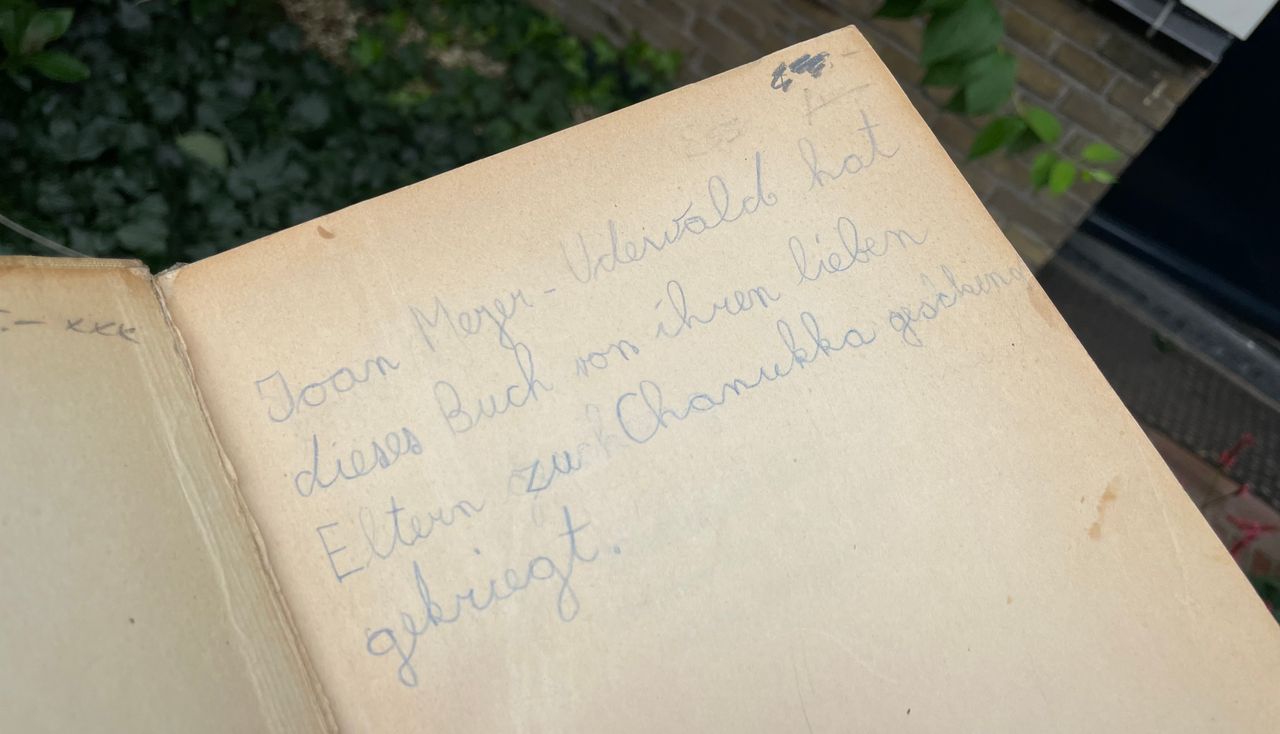 :- xxx
Joan Meyer-Uderwald hat
dieses Buch von ihren lieben
Eltern zu Chanukka gescheng
gekriegt.